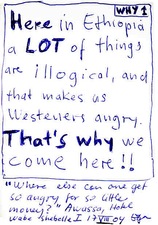 WHY 1
Here in Ethiopia
a LOT of things
are illogical, and
that makes us
Westeners angry.
That's why we
come here!!
"Where else can one get
so angry for so little
money?" Awassa, Hotel
Wabe Shebelle I 17 VIII 04